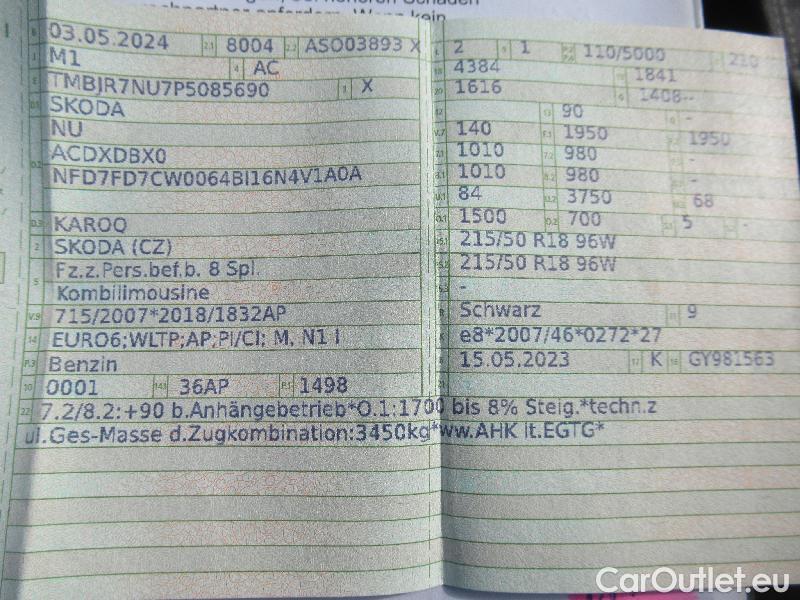 03.05.2024 2.1 8004 2.2 ASO03893 X
M1 4 AC
TMBJR7NU7P5085690 3 X
SKODA
NU
ACDXDBX0
NFD7FD7CW0064BI16N4V1A0A
D.3 KAROQ
2 SKODA (CZ)
5 Fz.z.Pers.bef.b. 8 Spl.
Kombilimousine
V.9 715/2007*2018/1832AP
14 EURO6;WLTP;AP;PI/CI; M, N1 I
P.3 Benzin
10 0001 14.1 36AP P.1 1498
L 2 9 1 110/5000 210
18 4384 19 1841
20 1616 G 1408--
12 - 13 90 Q -
V.7 140 F.1 1950 F.2 1950
7.1 1010 7.2 980 -
8.1 1010 8.2 980 -
U.1 84 U.2 3750 68
O.1 1500 O.2 700 S.1 5 -
15.1 215/50 R18 96W
15.2 215/50 R18 96W
-
R Schwarz 11 9
K e8*2007/46*0272*27
6 15.05.2023 17 K 16 GY981563
22 7.2/8.2:+90 b.Anhängebetrieb*O.1:1700 bis 8% Steig.*techn.z
ul.Ges-Masse d.Zugkombination:3450kg*ww.AHK lt.EGTG*
CarOutlet.eu